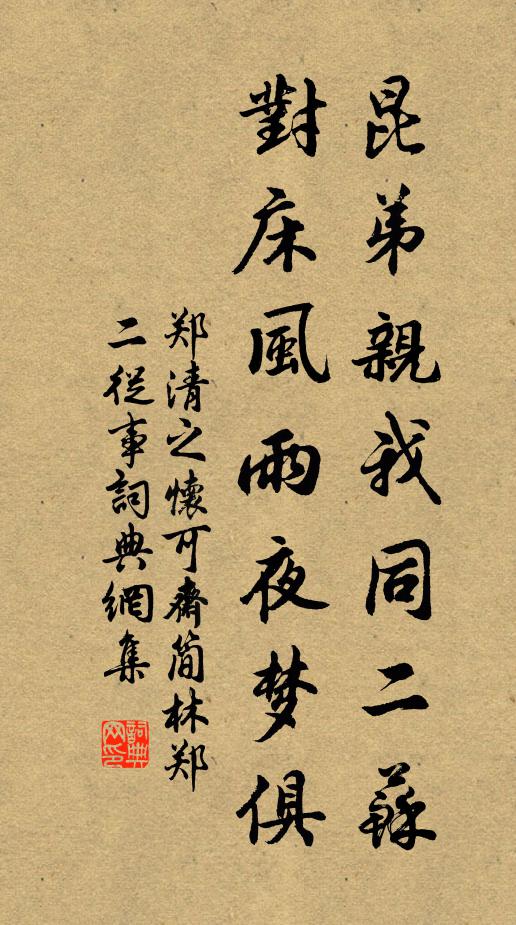 昆弟親我同二蘇
對床風雨夜梦俱
郑清之懷可齋简林郑
二從事詞典網集
詞典网印